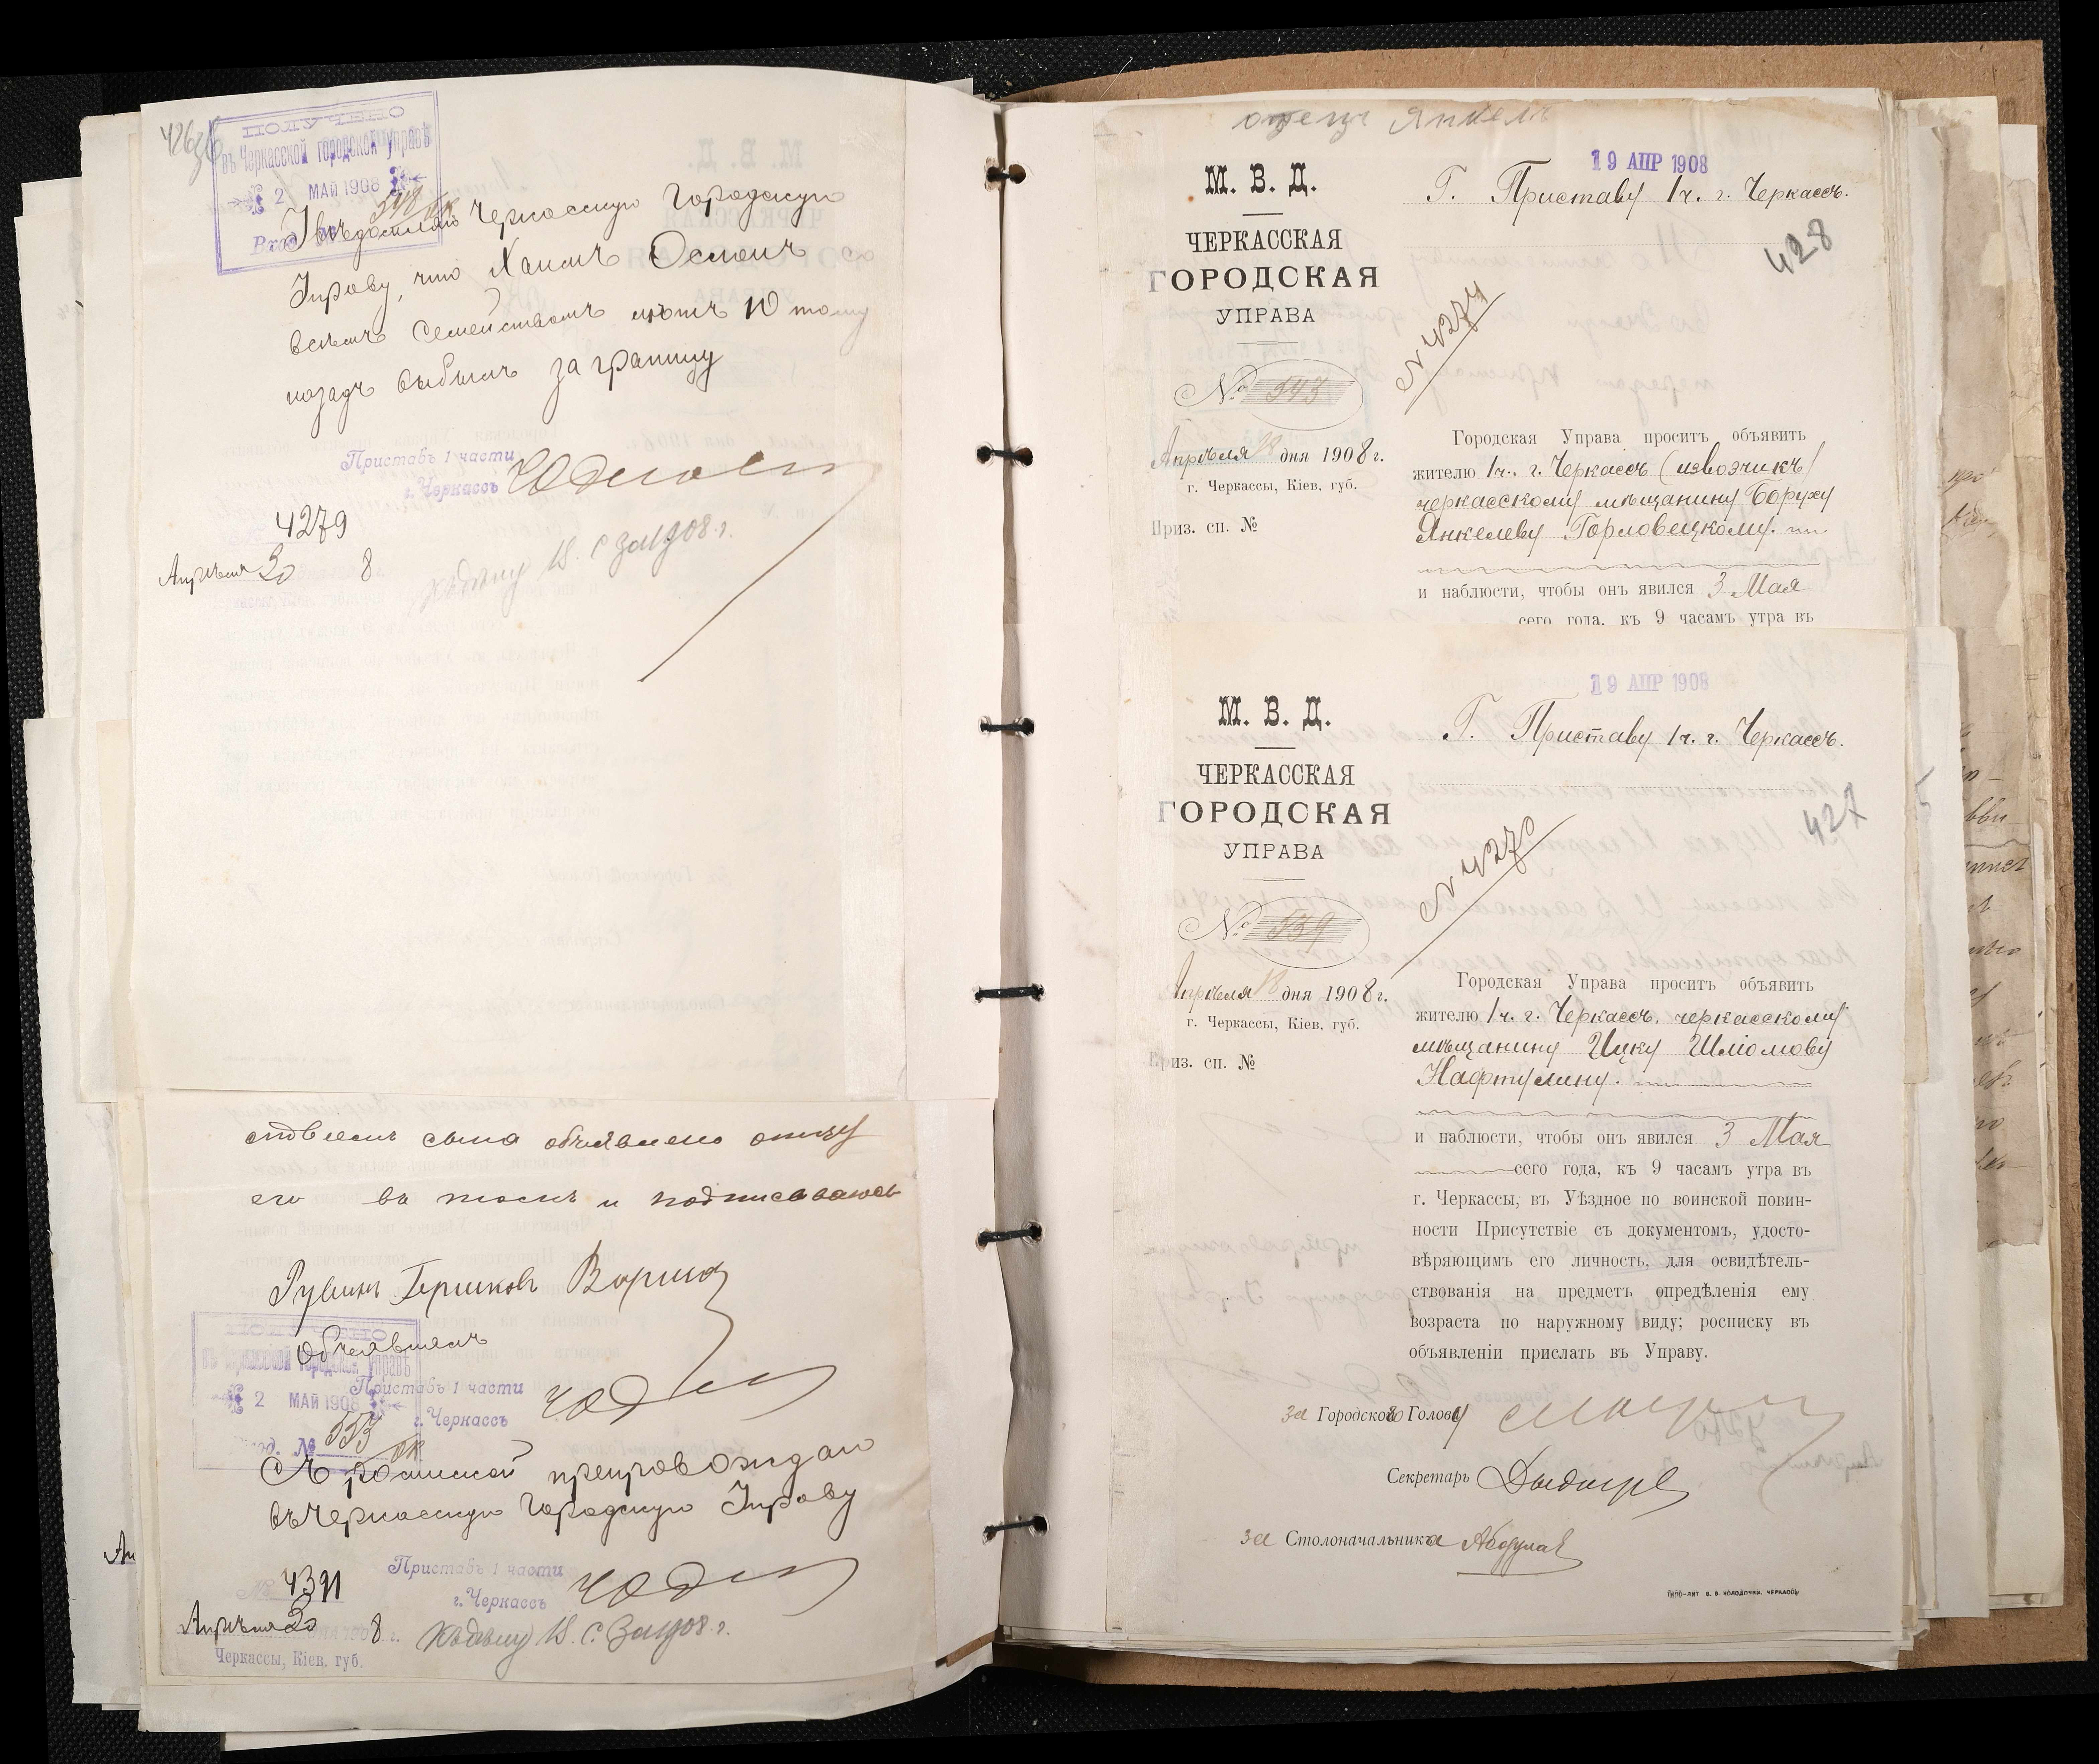 426 об
ПОЛУЧЕНО
въ Черкасской городской управѣ
2 МАЙ 1908
548
Увѣдомляю Черкасскую Городскую
Управу, что Хаимъ Осмонъ со
всѣмъ семействомъ лѣтъ 10 тому
назадъ выбылъ за границу
Приставъ 1 части
г. Черкассъ
4279
Апрѣля 30 8
къ дѣлу 18. с. 1908 г.
сына объявлено отцу
его въ томъ и подписываюсь
Рувинъ Гершковъ
объявилъ
ПОЛУЧЕНО
въ Черкасской городской управѣ
2 МАЙ 1908
Вход. № 553
Приставъ 1 части
г. Черкассъ
Съ роспиской препровождаю
въ Черкасскую Городскую Управу
4391
Приставъ 1 части
г. Черкассъ
Апрѣля 30 8 г.
Черкассы, Кіев. губ.
къ дѣлу 18. с. 1908 г.
отецъ Янкель
19 АПР 1908
М. В. Д.
ЧЕРКАССКАЯ
ГОРОДСКАЯ
УПРАВА
№ 543
Апрѣля 18 дня 1908 г.
г. Черкассы, Кіев. губ.
Приз. сп. №
Г. Приставу 1 ч. г. Черкассъ.
428
№ 4274
Городская Управа проситъ объявить
жителю 1 ч. г. Черкассъ (извозчикъ)
черкасскому мѣщанину Боруху
Янкелеву Горловецкому.
и наблюсти, чтобы онъ явился 3 Мая
сего года, къ 9 часамъ утра въ
19 АПР 1908
М. В. Д.
ЧЕРКАССКАЯ
ГОРОДСКАЯ
УПРАВА
№ 539
Апрѣля 18 дня 1908 г.
г. Черкассы, Кіев. губ.
Приз. сп. №
Г. Приставу 1 ч. г. Черкассъ.
427
№ 4270
Городская Управа проситъ объявить
жителю 1 ч. г. Черкассъ, черкасскому
мѣщанину Ицку Шліомову
Нафтулину.
и наблюсти, чтобы онъ явился 3 Мая
сего года, къ 9 часамъ утра въ
г. Черкассы, въ Уѣздное по воинской повин-
ности Присутствіе съ документомъ, удосто-
вѣряющимъ его личность, для освидѣтель-
ствованія на предметъ опредѣленія ему
возраста по наружному виду; росписку въ
объявленіи прислать въ Управу.
За Городского Голову
Секретарь
За Столоначальника